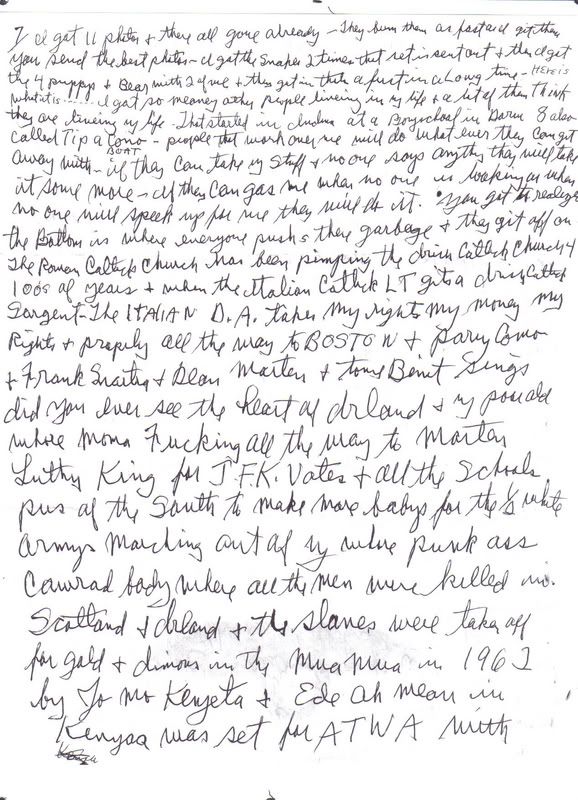 I got 11 photos & there all gone already - They burn them as fast as I git them
you send the best photos - I get the Snakes 2 times that set is sent out & then I get
the 4 puppys & Bear with 2 of me & they get in thats a first in a Long time - HERE is
what it is..... I got so meoney other people liveing in my life & a lot of them Think
they are liveing my life - That started in Indina at a Boyschool in Dorm 8 also
called Tip a cono - people that work over me will do what ever they can get
BOAT
away with - if they can take my stuff & no one says anything they will take
it some more - If they can gas me when no one is looking or when
no one will speek up for me they will do it. you got to realize
the Bottom is where everyone push s there garbage & they git off on
The Roman Catlick Church has been pimping the driss Catlick Church 4
100s of years & when the Italian Catlick LT gits a driss Catlick
Sargent - The ITALIAN D.A. takes my rights my money my
Rights & propely all the way to BOSTON & Pary Como
& Frank Snatra & Dean Marten & tony Benit Sings
did you ever see the heart of Irland & my poor old
whore Moma Fucking all the way to Marten
Luthy King for J F.K. Votes & all the Schools
pus of the South to make more babys for the ½ white
armys Marching out of my whore punk ass
Cowrad body where all the men were killed in.
Scotland & Irland & the slaves were taken off
for gold & dimons in the Mua Mua in 1963
by Jo Mo Kenyeta & Ede Ah mean in
Kenyaa was set for ATWA with